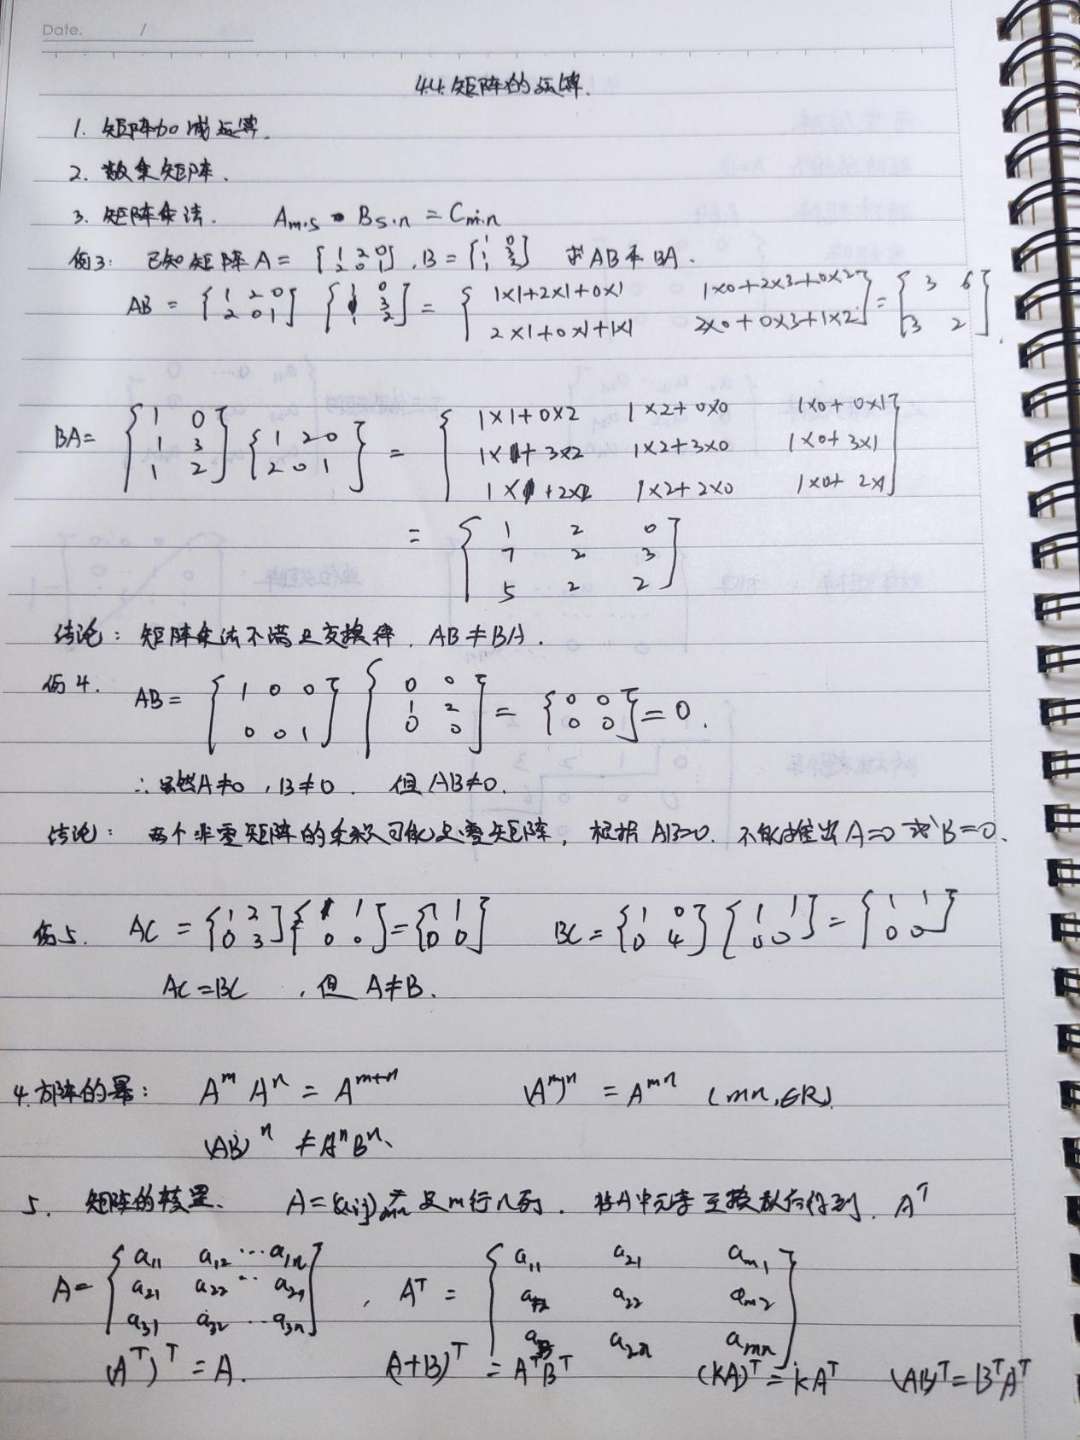 Date. /
4.4 矩阵的运算.
1. 矩阵加减运算.
2. 数乘矩阵.
3. 矩阵乘法. Am·s · Bs·n = Cm·n
例3: 已知矩阵A = [1 2 0; 2 0 1], B = [1 0; 1 3; 1 2] 求AB和BA.
AB = [1 2 0; 2 0 1] [1 0; 1 3; 1 2] = [1×1+2×1+0×1 1×0+2×3+0×2; 2×1+0×1+1×1 2×0+0×3+1×2] = [3 6; 3 2].
BA = [1 0; 1 3; 1 2] [1 2 0; 2 0 1] = [1×1+0×2 1×2+0×0 1×0+0×1; 1×1+3×2 1×2+3×0 1×0+3×1; 1×1+2×2 1×2+2×0 1×0+2×1]
= [1 2 0; 7 2 3; 5 2 2]
结论: 矩阵乘法不满足交换律. AB≠BA.
例4. AB = [1 0 0; 0 0 1] [0 0; 1 2; 0 0] = [0 0; 0 0] = 0.
∴虽然A≠0, B≠0. 但AB≠0.
结论: 两个非零矩阵的乘积可能是零矩阵, 根据AB=0. 不能推出A=0或B=0.
例5. AC = [1 2; 0 3] [1 1; 0 0] = [1 1; 0 0] BC = [1 0; 0 4] [1 1; 0 0] = [1 1; 0 0]
AC=BC , 但 A≠B.
4. 方阵的幂: A^m A^n = A^(m+n) (A^m)^n = A^(mn) (mn,∈R)
(AB)^n ≠ A^n B^n.
5. 矩阵的转置. A=(aij)mn 是m行n列. 将A中元素互换 A^T
A = [a11 a12 ··· a1n; a21 a22 ·· a2n; a31 a32 ·· a3n] , A^T = [a11 a21 am1; a12 a22 am2; a13 a2n amn]
(A^T)^T = A. (A+B)^T = A^T B^T (kA)^T = kA^T (AB)^T = B^T A^T